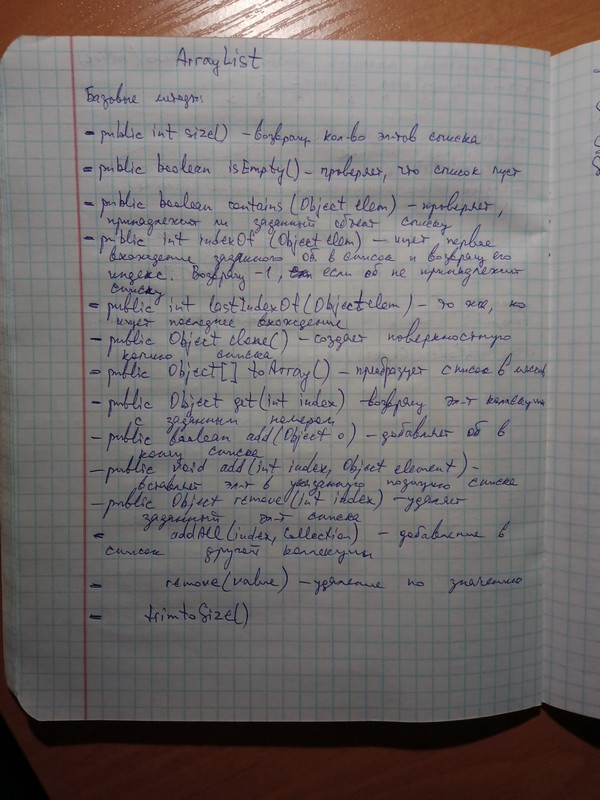 ArrayList
Базовые методы:
- public int size() - возвращ. кол-во эл-тов списка
- public boolean isEmpty() - проверяет, что список пуст
- public boolean contains (Object elem) - проверяет,
принадлежит ли заданный объект списку
- public int indexOf (Object elem) - ищет первое
вхождение заданного об в список и возвращ его
индекс. Возвращ -1, если об не принадлежит
списку
- public int lastIndexOf (Object elem) - то же, но
ищет последнее вхождение
- public Object clone() - создаёт поверхностную
копию списка
- public Object[] toArray() - преобразует список в массив
- public Object get(int index) - возвращу эл-т коллекции
с заданным номером
- public boolean add(Object o) - добавляет об в
конец списка
- public void add(int index, Object element) -
вставляет эл-т в указанную позицию списка
- public Object remove (int index) - удаляет
заданный эл-т списка
- addAll (index, Collection) - добавление в
список другой коллекции
- remove(value) - удаление по значению
- trimtoSize()